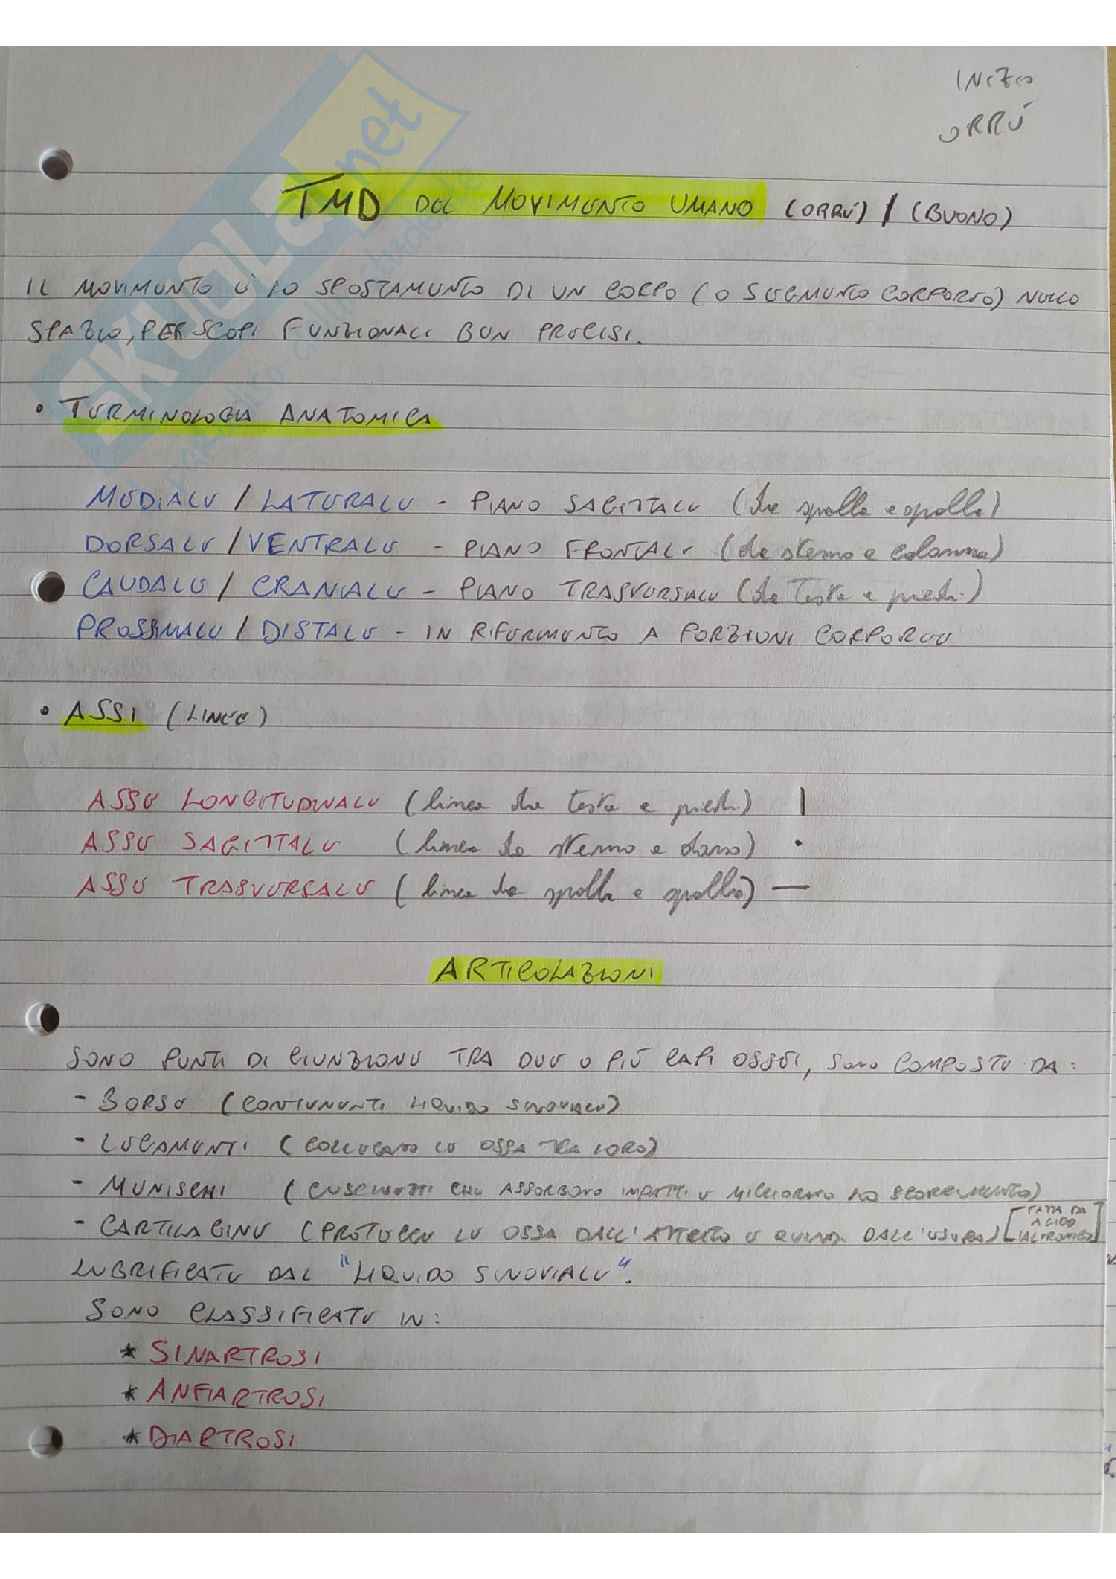 INIZIO
ORRÚ
TMD DEL MOVIMENTO UMANO (ORRÚ) / (BUONO)
IL MOVIMENTO È LO SPOSTAMENTO DI UN CORPO (O SEGMENTO CORPOREO) NELLO
SPAZIO, PER SCOPI FUNZIONALI BEN PRECISI.
• TERMINOLOGIA ANATOMICA
MEDIALE / LATERALE - PIANO SAGITTALE (da spalla a spalla)
DORSALE / VENTRALE - PIANO FRONTALE (da sterno a colonna)
CAUDALE / CRANIALE - PIANO TRASVERSALE (da testa a piedi)
PROSSIMALE / DISTALE - IN RIFERIMENTO A PORZIONI CORPOREE
• ASSI (LINEE)
ASSE LONGITUDINALE (linea da testa a piedi) |
ASSE SAGITTALE (linea da sterno a dorso) •
ASSE TRASVERSALE (linea da spalla a spalla) —
ARTICOLAZIONI
SONO PUNTI DI GIUNZIONE TRA DUE O PIÙ CAPI OSSEI, SONO COMPOSTE DA:
- BORSE (CONTENENTI LIQUIDO SINOVIALE)
- LEGAMENTI (COLLEGANO LE OSSA TRA LORO)
- MENISCHI (CUSCINETTI CHE ASSORBONO IMPATTI E MIGLIORANO LO SCORRIMENTO)
- CARTILAGINE (PROTEGGE LE OSSA DALL'ATTRITO E QUINDI DALL'USURA) [FATTA DA
ACIDO
IALURONICO]
LUBRIFICATE DAL "LIQUIDO SINOVIALE".
SONO CLASSIFICATE IN:
* SINARTROSI
* ANFIARTROSI
* DIARTROSI
SKUOLA.net